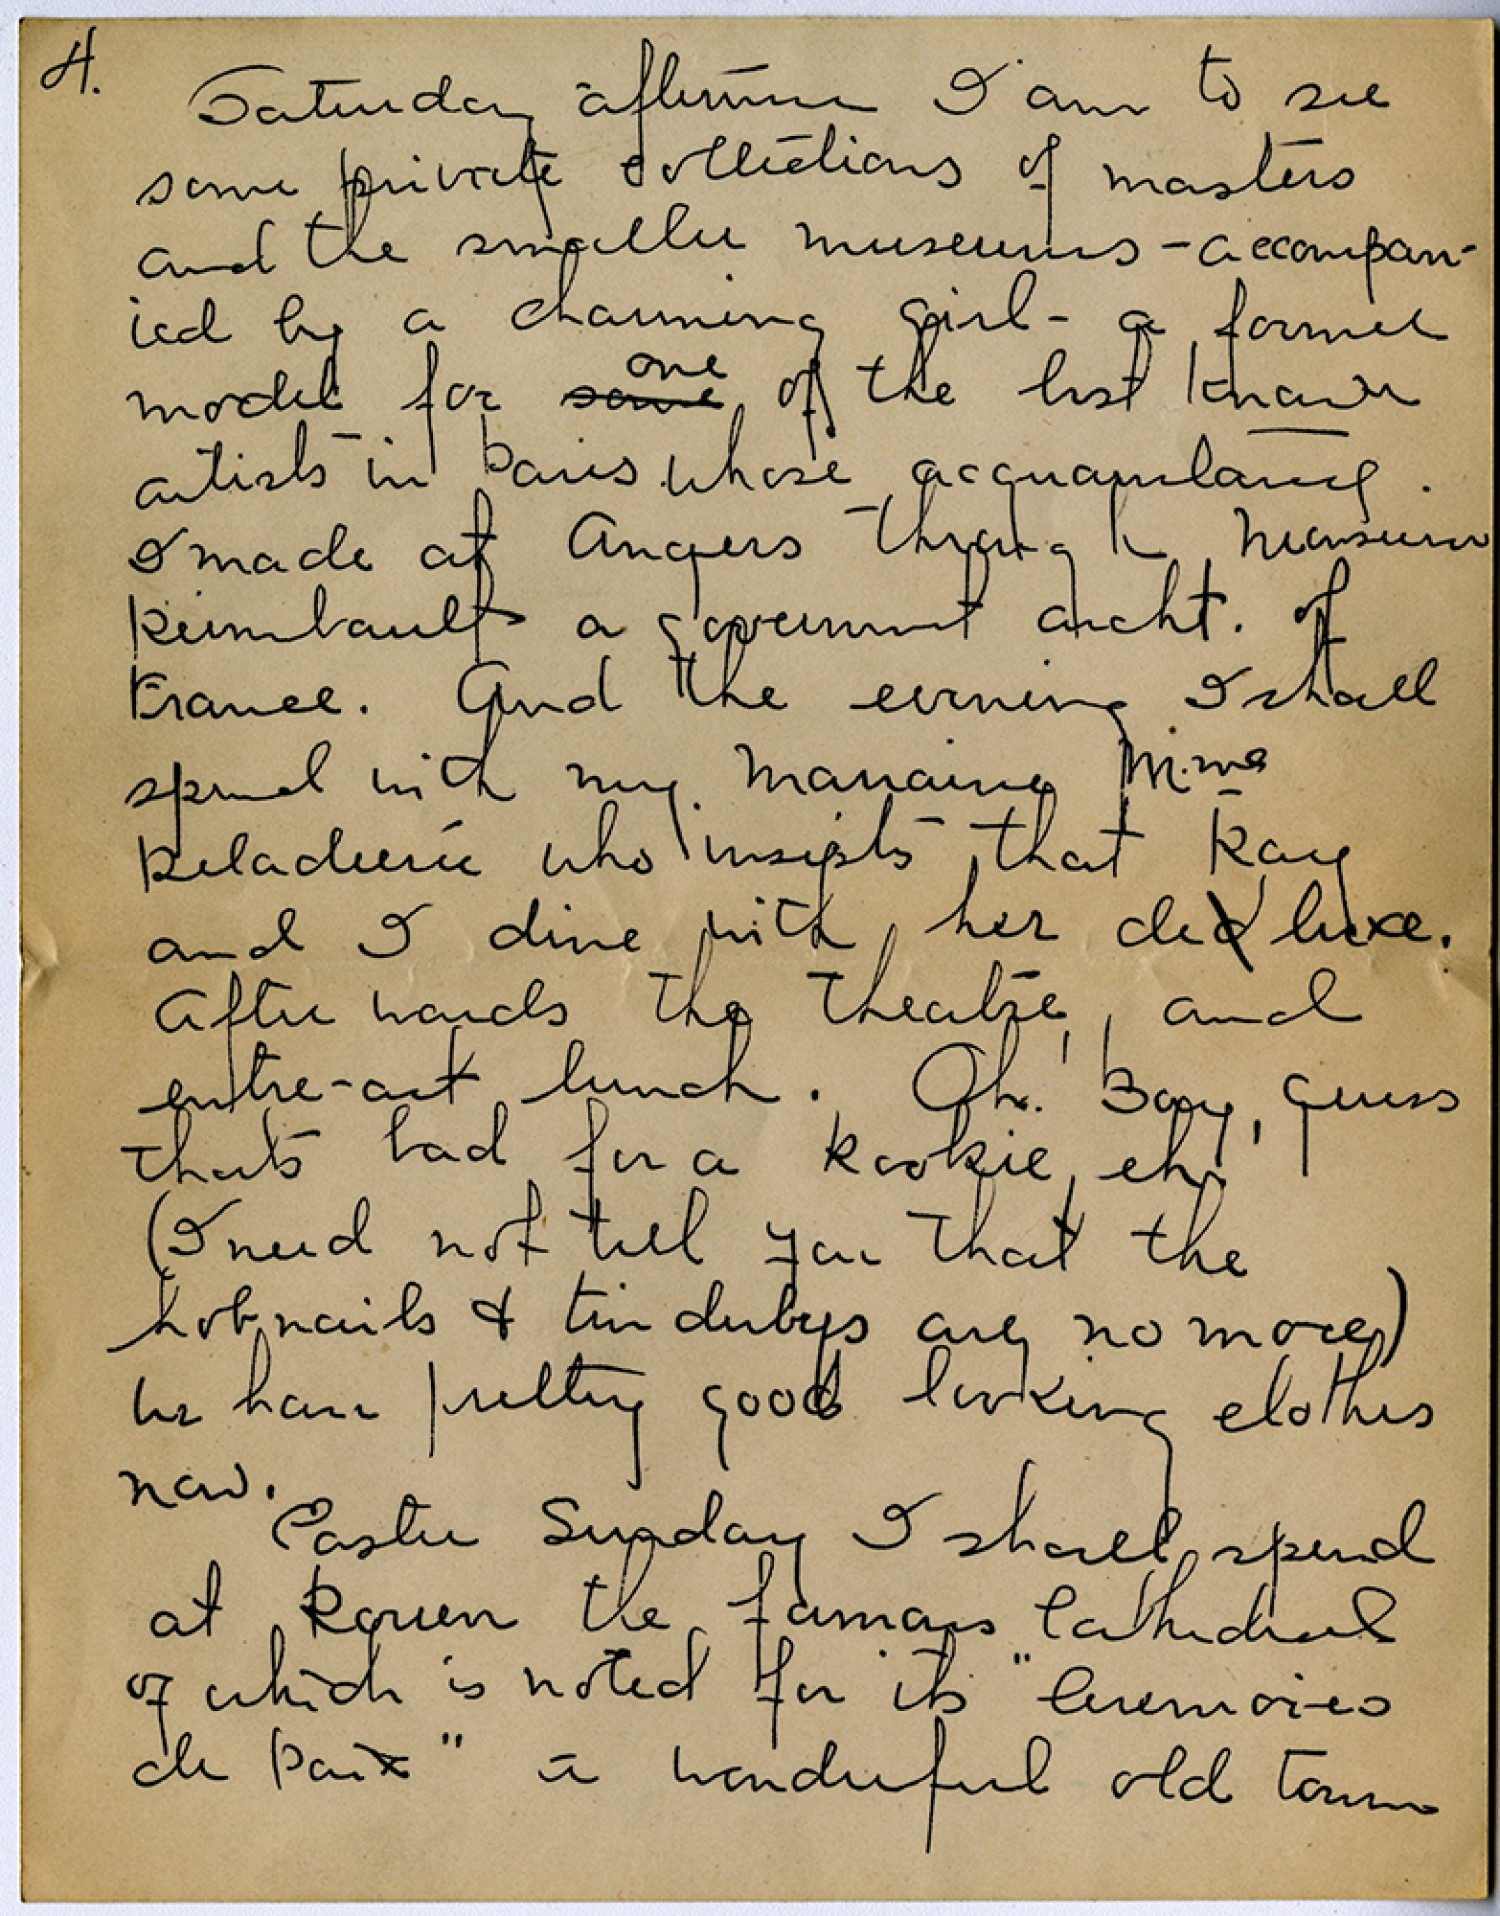 4.
Saturday afternoon I am to see
some private collections of masters
and the smaller museums - accompan-
ied by a charming girl - a former
model for some one of the best known
artists in Paris whose acquaintance
I made at Angers through Monsieur
a government archt. of
France. And the evening I shall
spend with my Marraine Mme
who insists that Ray
and I dine with her de luxe.
Afterwards the theatre, and
entre-act lunch. Oh! Boy, guess
thats bad for a Rookie, eh!
(I need not tell you that the
hobnails & tin derbys are no more)
We have pretty good looking clothes
now.
Easter Sunday I shall spend
at Rouen the famous Cathedral
of which is noted for its "Ceremoies
de Paix" a wonderful old town